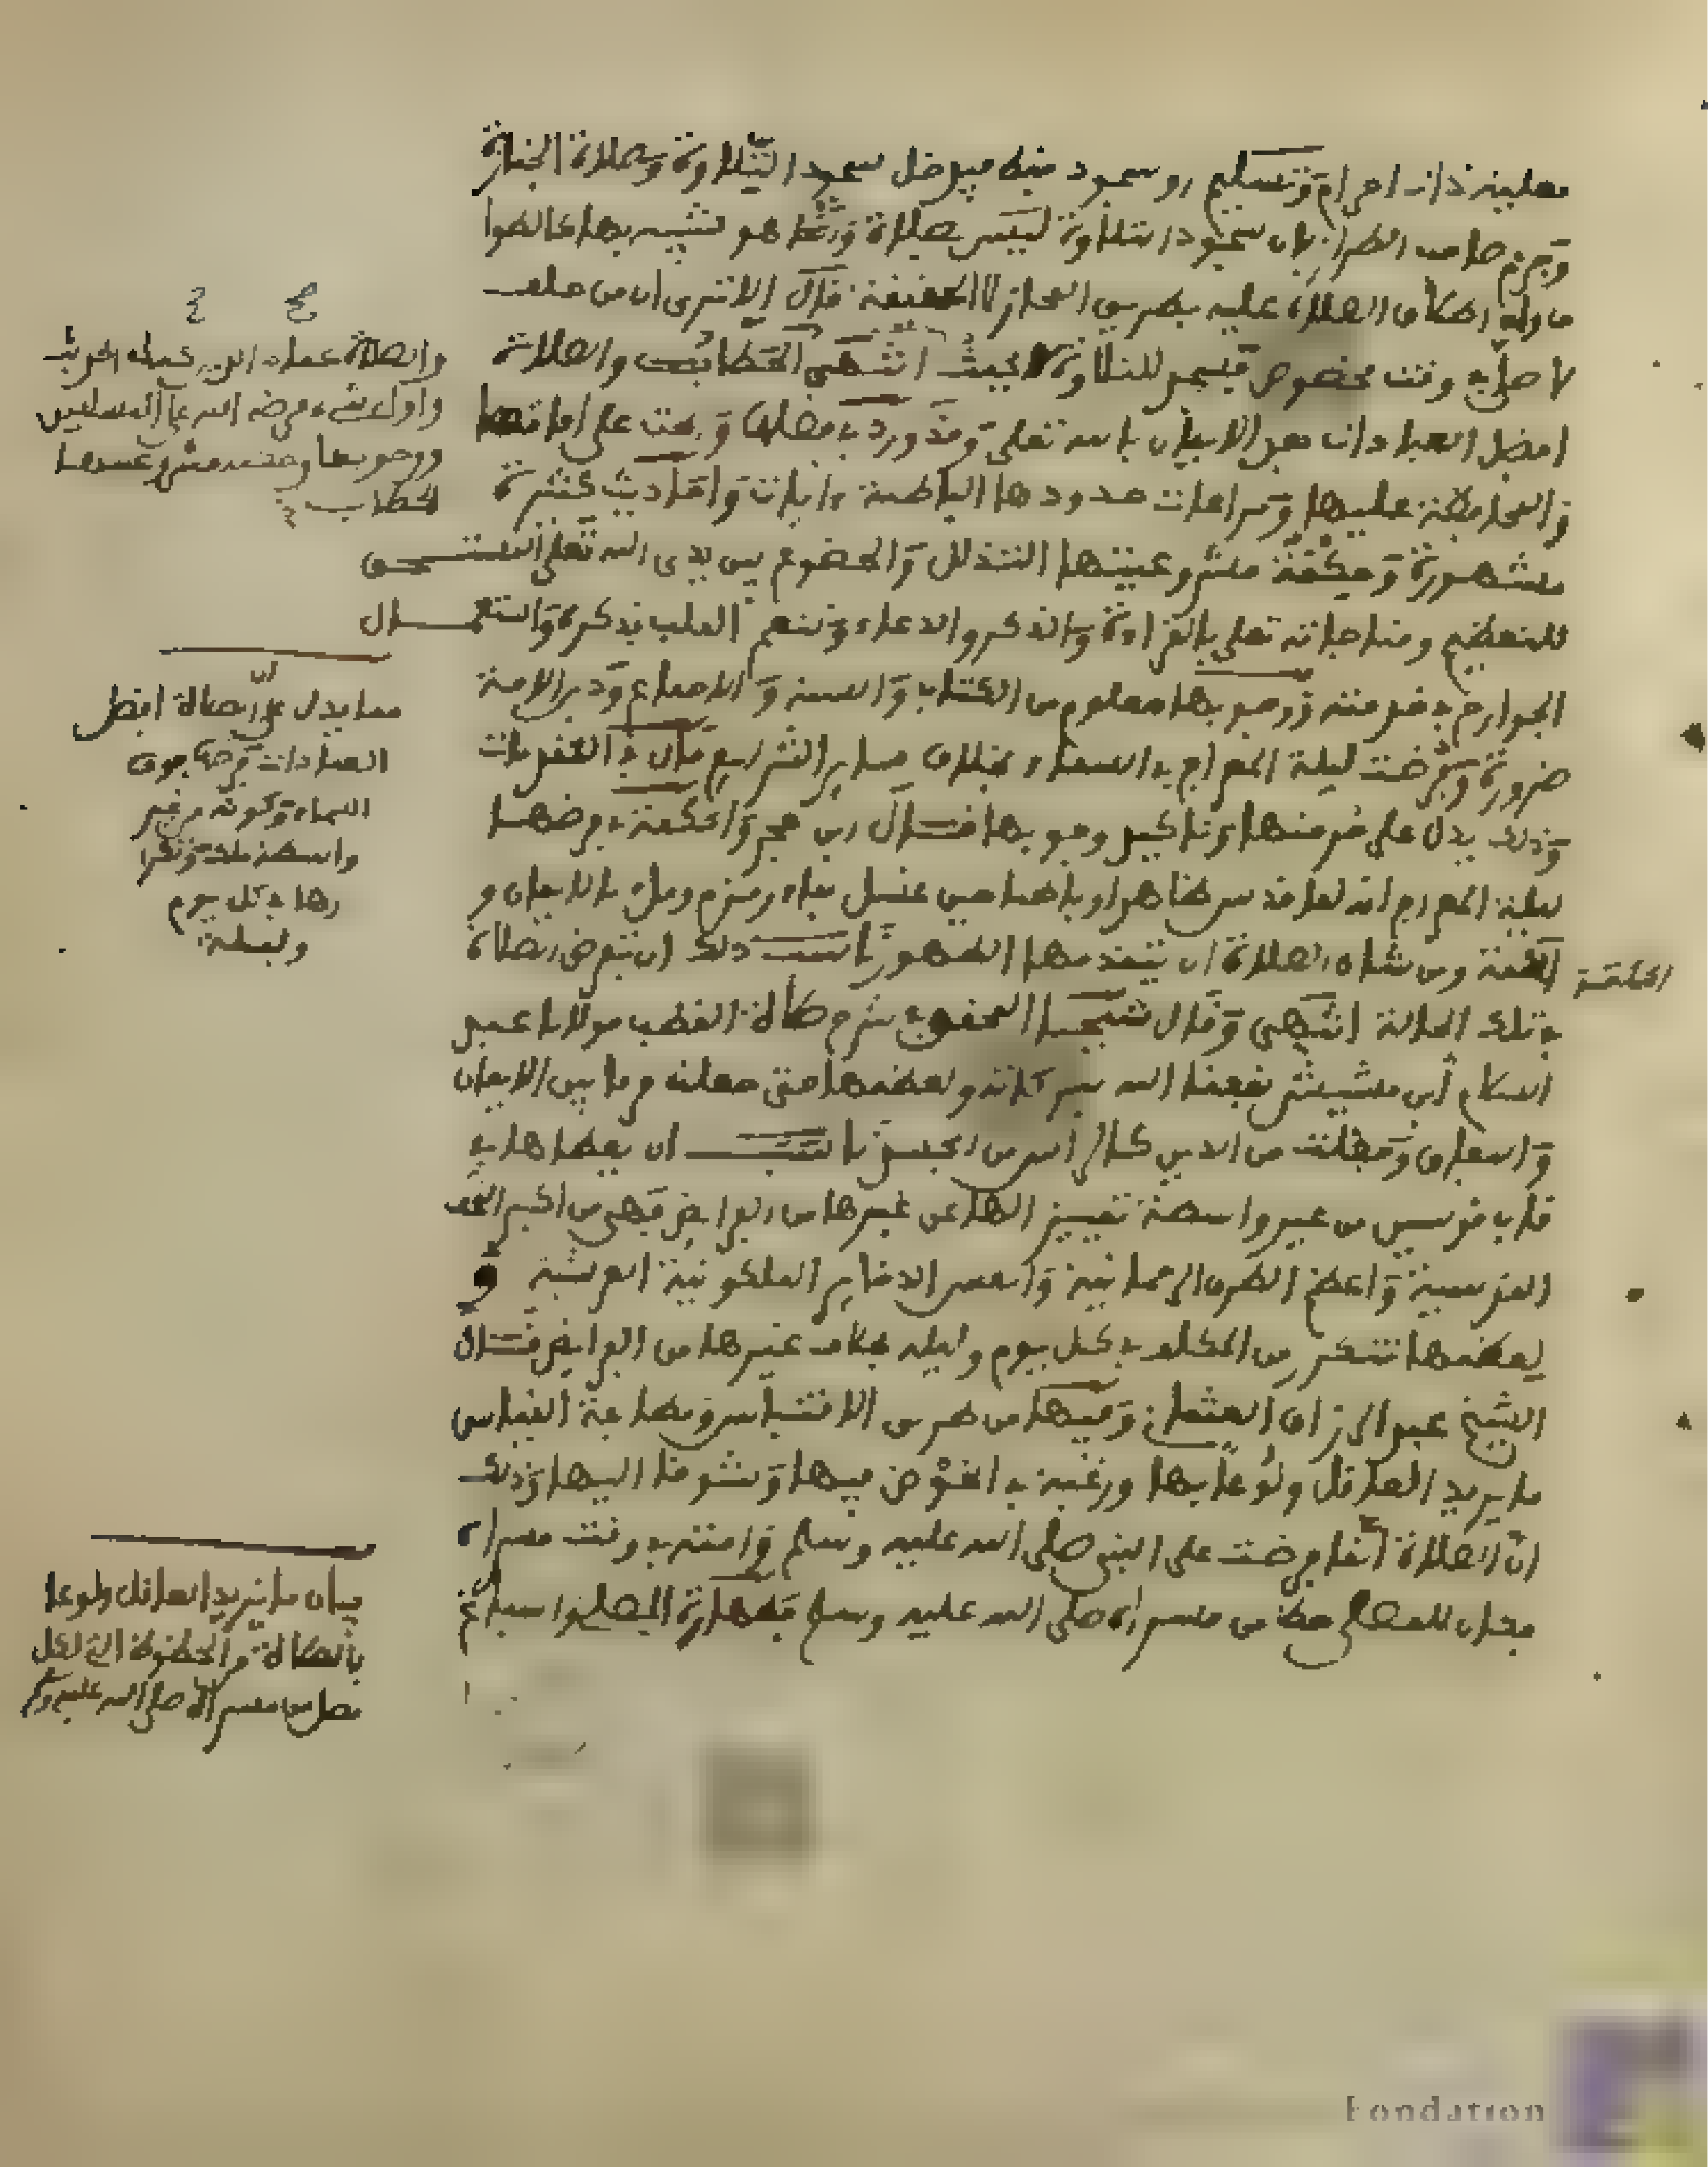 فعلية ذات احرام وتسليم او سجود فقط فيدخل سجود التلاوة وصلاة الجنازة
وجزم صاحب الطراز بان سجود التلاوة ليس صلاة وانما هو شبيه بها كالطواف
الصلاة عليه بطريق المجاز لا الحقيقة قال الا ترى ان من حلف
لا صلى في وقت مخصوص فسجد للتلاوة لا يحنث انتهى الحطاب والصلاة
افضل العبادات بعد الايمان بالله تعلى وقد ورد في فضلها وبحث على اقامتها
والمحافظة عليها ومراعات حدودها الباطنة ءايات واحاديث كثيرة
مشهورة وحكمة مشروعيتها التذلل والخضوع بين يدي الله تعلى المستحق
للتعظيم ومناجاته تعلى بالقراءة والذكر والدعاء وتنعم القلب بذكره واستعمال
الجوارح في خدمته ووجوبها معلوم من الكتاب والسنة والاجماع ودين الامة
ضرورة وفرضت ليلة المعراج في السماء بخلاف ساير الشرايع قال في المقدمات
وذلك يدل على حرمتها وتاكيد وجوبها قال ابن حجر والحكمة في فرضها
ليلة المعراج انه لما قدس ظاهرا وباطنا حين غسل بماء زمزم وملئ بالايمان و
الحكمة ومن شان الصلاة ان يتقدمها الطهور ناسب ذلك ان تفرض الصلاة
الحكمة
في تلك الحالة انتهى وقال شيخنا المحقق في شرح صلاة القطب مولانا عبد
السلام ابن مشيش نفعنا الله ببركاته ولعظمها حتى جعلت فرقا بين الايمان
والنفاق وجعلت من الدين كالراس من الجسد ناسب ان يعطاها في
قاب قوسين من غير واسطة تمييزا لها عن غيرها من الفرايض فهي من اكبر التحف
القدسية واعظم الطرف الرحمانية وانفس الذخاير الملكوتية العرشية و
لعظمها تتكرر من المكلف في كل يوم وليلة بخلاف غيرها من الفرايض قال
الشيخ عبد الرزاق العثماني وفيها من طريق الاقتباس
ما يزيد العاقل ولوعا بها ورغبة في الخوض فيها وتشوقا اليها وذلك
ان الصلاة انما فرضت على النبي صلى الله عليه وسلم وامته في وقت مسراه
فكان للمصلي حظا من مسراه صلى الله عليه وسلم فطهارة المصلي
والصلاة عماد الدين كما في الحديث
واول شيء فرضه الله على المسلمين
ووجوبها
الحطاب
مما يدل على ان الصلاة افضل
العبادات فرضها فوق
السماء وكونه من غير
واسطة ملك وتكرا
رها في كل يوم
وليلة
بيان ما يزيد العاقل ولوعا
بالصلاة والحظوظ التي لكل
مصل من مسراه صلى الله عليه وسلم
Fondation